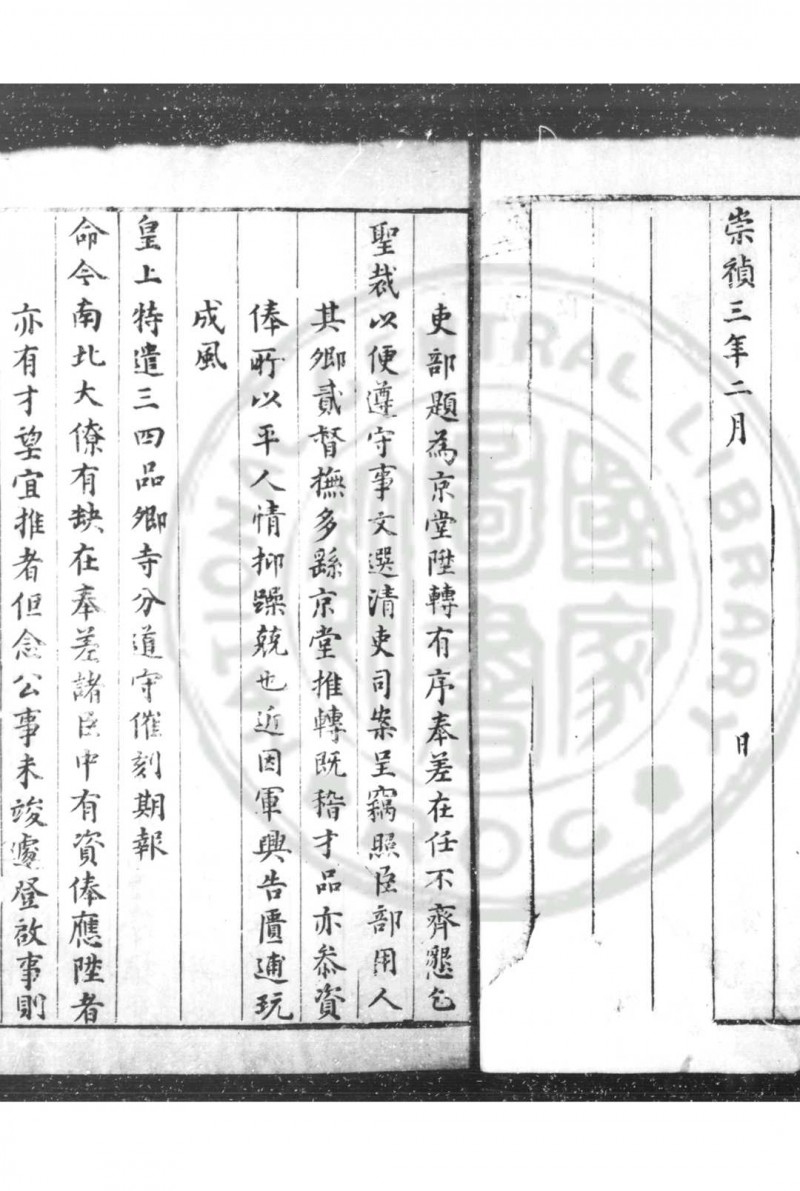 崇禎三年二月 日
吏部題為京堂陞轉有序奉差在任不齊懇乞
聖裁以便遵守事文選清吏司案呈竊照臣部用人
其卿貳督撫多繇京堂推轉既稽才品亦叅資
俸所以平人情抑躁兢也近因軍興告匱逋玩
成風
皇上特遣三四品卿寺分道守催刻期報
命今南北大僚有缺在奉差諸臣中有資俸應陞者
亦有才望宜推者但念公事未竣遽登啟事則
國家圖書
NATIONAL CENTRAL LIBRARY